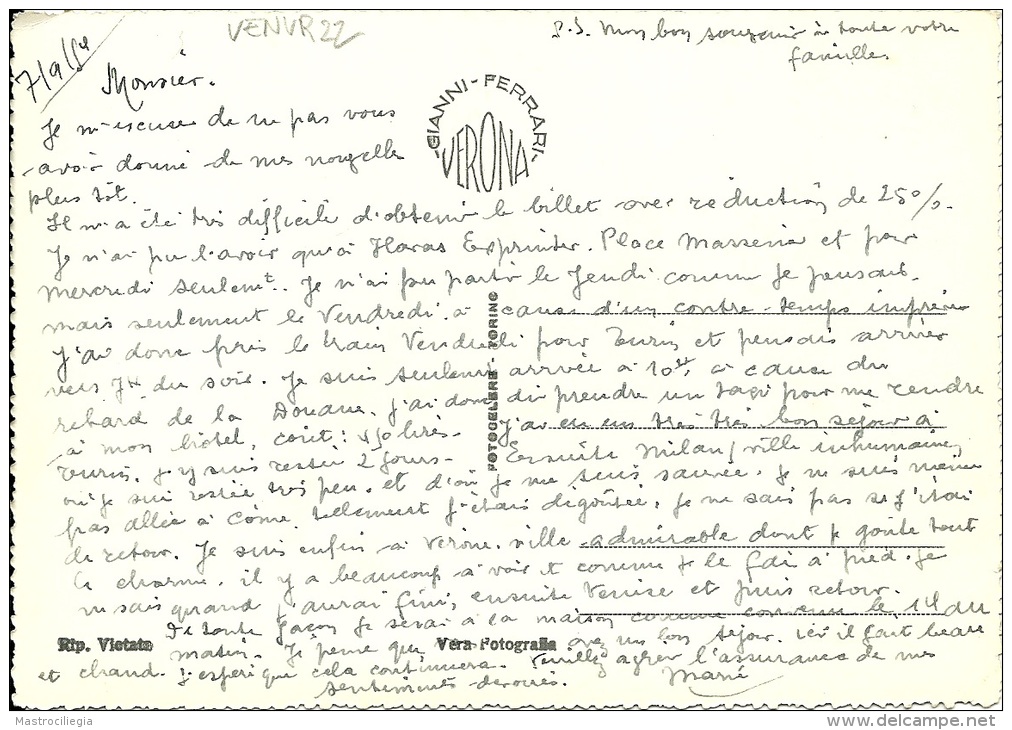 VENVR22
P.S. Mon bon souvenir à toute votre
famille.
7/9/54
Monsieur.
Je m'excuse de ne pas vous
avoir donné de mes nouvelles
plus tôt.
GIANNI - FERRARI
VERONA
Il m'a été très difficile d'obtenir le billet avec réduction de 25%.
Je n'ai pu l'avoir qu'à Havas Exprinter. Place Massena et pour
mercredi seulemt.. Je n'ai pu partir le Jeudi comme je pensais.
mais seulement le Vendredi. à cause d'un contre-temps imprévu
J'ai donc pris le train Vendredi pour Turin et pensais arriver
vers 7H du soir. Je suis seulemt arrivée à 10H, à cause du
retard de la Douane. J'ai donc dû prendre un taxi pour me rendre
à mon hôtel, coût: 450 lires. J'ai eu un très très bon séjour à
Turin. J'y suis restée 2 jours. Ensuite Milan, ville inhumaine,
où je suis restée très peu. et d'où je me suis sauvée. Je ne suis même
pas allée à Côme. tellement j'étais dégoûtée, je ne sais pas si j'irai
de retour. Je suis enfin à Vérone. ville admirable dont je goûte tout
le charme. il y a beaucoup à voir et comme je le fais à pied. Je
ne sais quand j'aurai fini, ensuite Venise et puis retour.
De toute façon je serai à la maison comme convenu le 14 au
matin. Je pense que avez un bon séjour. ici il fait beau
et chaud. J'espère que cela continuera. Veuillez agréer l'assurance de mes
sentiments dévoués. Marie
Rip. Vietata
Vera Fotografia
FOTOCELERE - TORINO
Mastrociliegia
www.delcampe.net